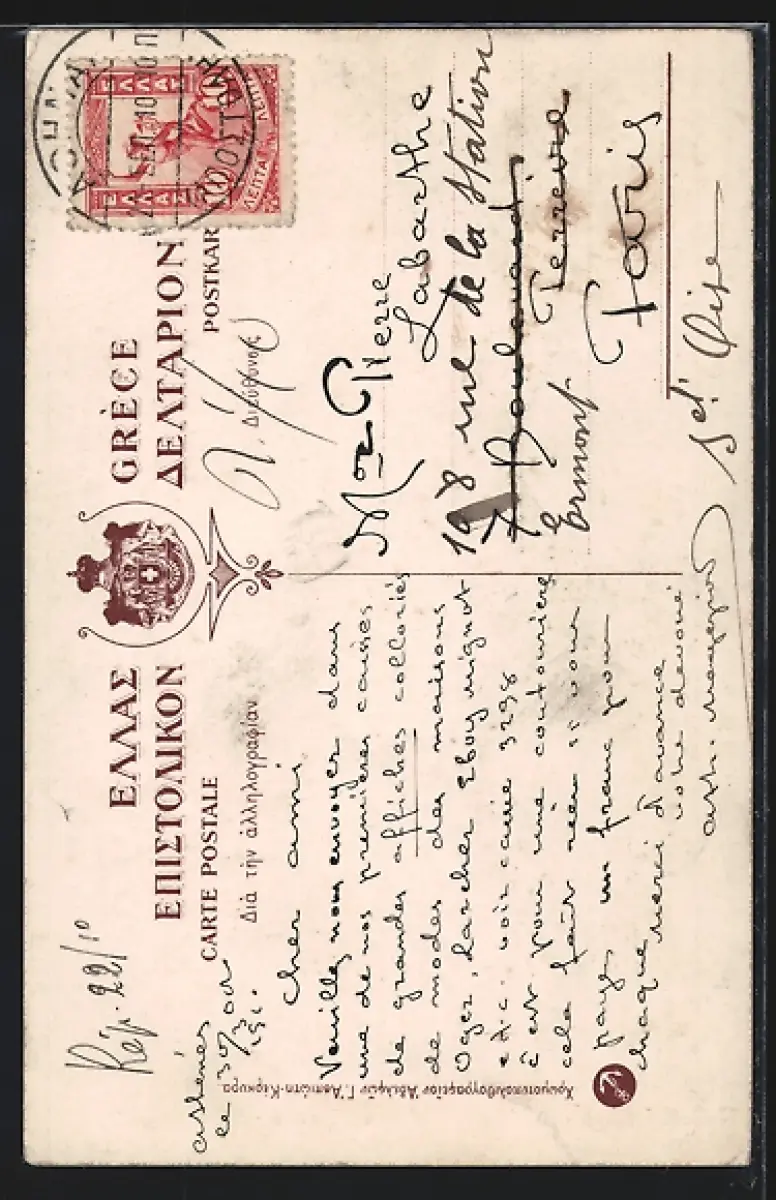 ΕΛΛΑΣ GRÈCE
ΕΠΙΣΤΟΛΙΚΟΝ ΔΕΛΤΑΡΙΟΝ
CARTE POSTALE POSTKAR
Διὰ τὴν ἀλληλογραφίαν
Διεύθυνσις
ΕΛΛΑΣ
ΕΛΛΑΣ
10 ΛΕΠΤΑ
10 ΛΕΠΤΑ
Rép. 22/10
athènes
le
cher ami
Veuillez nous envoyer dans
une de nos premières caisses
de grandes affiches colloriés
de modes des maisons
Oger, Larcher
etc. voir caisse 3298
c'est pour une couturière
cela fait rien si vous
payez un franc pour
chaque merci d'avance
votre dévoué
Mr Pierre
Labarthe
198 rue de la Station
7 Boulevard
Ermont Terreire
Paris
Set Oise
Χρωμοτυπολιθογραφεῖον Ἀδελφῶν Γ. Ἀσπιώτη-Κέρκυρα.